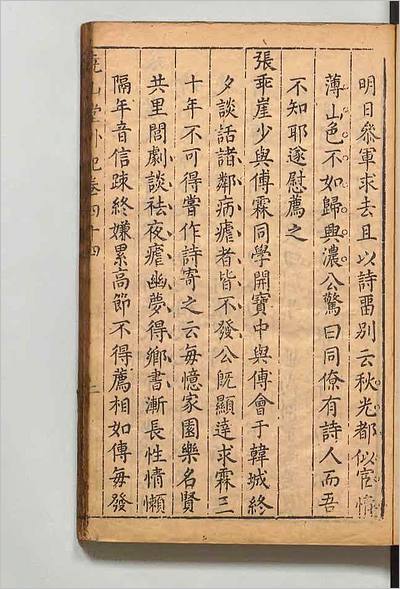 明日叅軍求去且以詩畱别云秋光都似宦情
薄山色不如歸興濃公驚曰同僚有詩人而吾
不知耶遂慰薦之
張乖崖少與傅霖同學開寶中與傅會于韓城終
夕談話諸鄰病瘧者皆不發公旣顯達求霖三
十年不可得嘗作詩寄之云每憶家園樂名賢
共里閭劇談袪夜瘧幽夢得鄉書漸長性情懶
隔年音信踈終嫌累高節不得薦相如傅每發
堯山堂外紀卷四十四
二